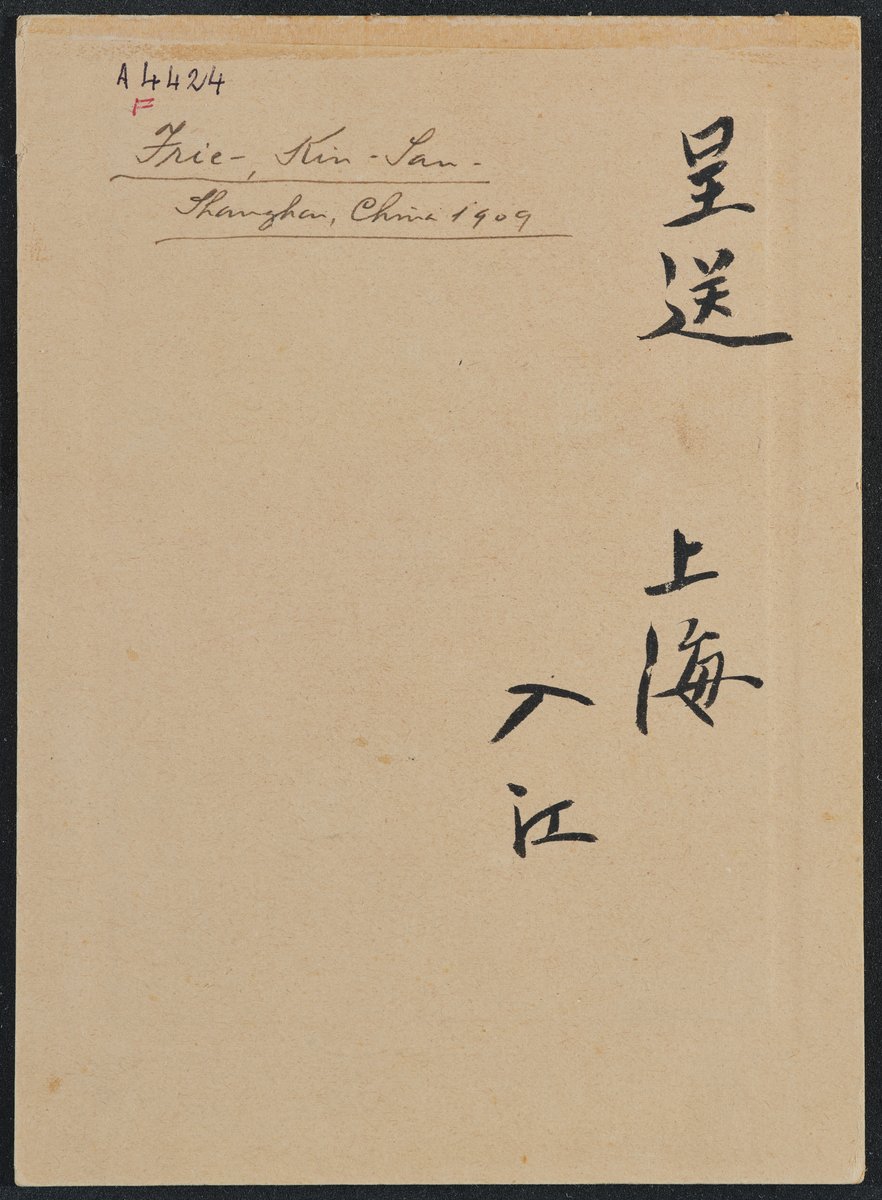 A 4424
F
Irie-, Kin-San-
Shanghai, China 1909
呈送 上海
入江